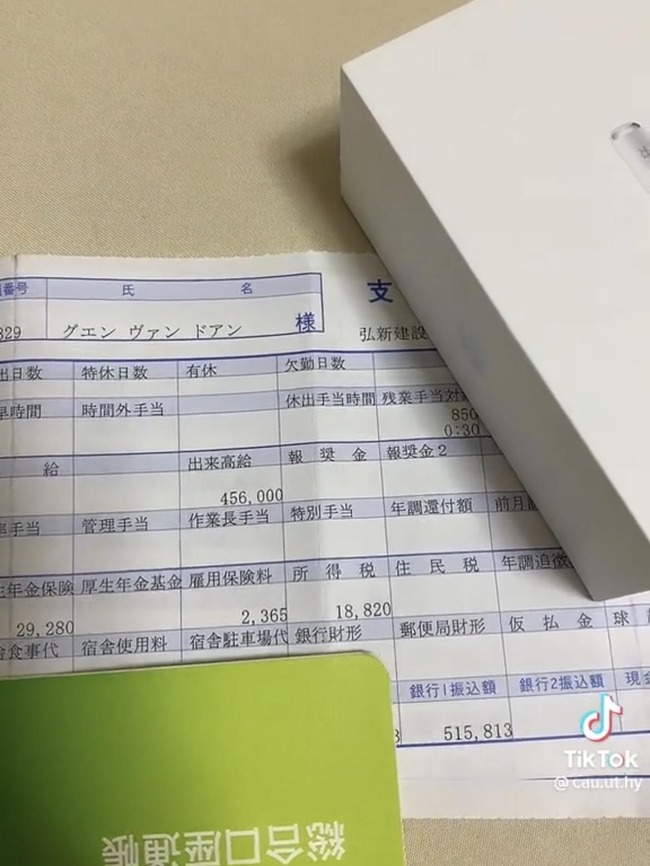 番号 氏 名 支
329 グエン ヴァン ドアン 様 弘新建設
出日数 特休日数 有休 欠勤日数
早時間 時間外手当 休出手当時間 残業手当対
850
0:30
給 出来高給 報奨金 報奨金2
456,000
手当 管理手当 作業長手当 特別手当 年調還付額 前月
年金保険 厚生年金基金 雇用保険料 所得税 住民税 年調追徴
29,280 2,365 18,820
食事代 宿舎使用料 宿舎駐車場代 銀行財形 郵便局財形 仮払金 球
銀行1振込額 銀行2振込額 現金
3 515,813
総合口座通帳
TikTok
@cau.ut.hy